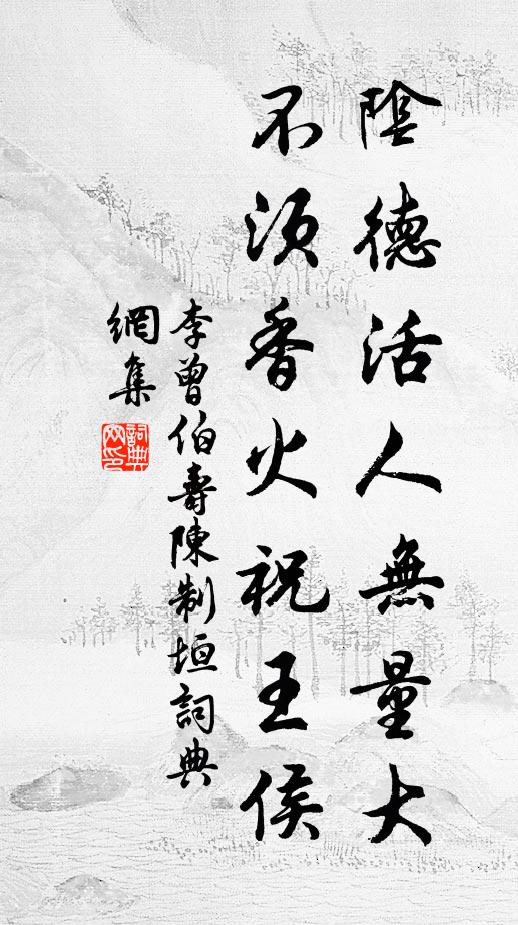 陰德活人無量大
不須香火祝王侯
李曾伯壽陳制垣詞典
網集
詞典
网印